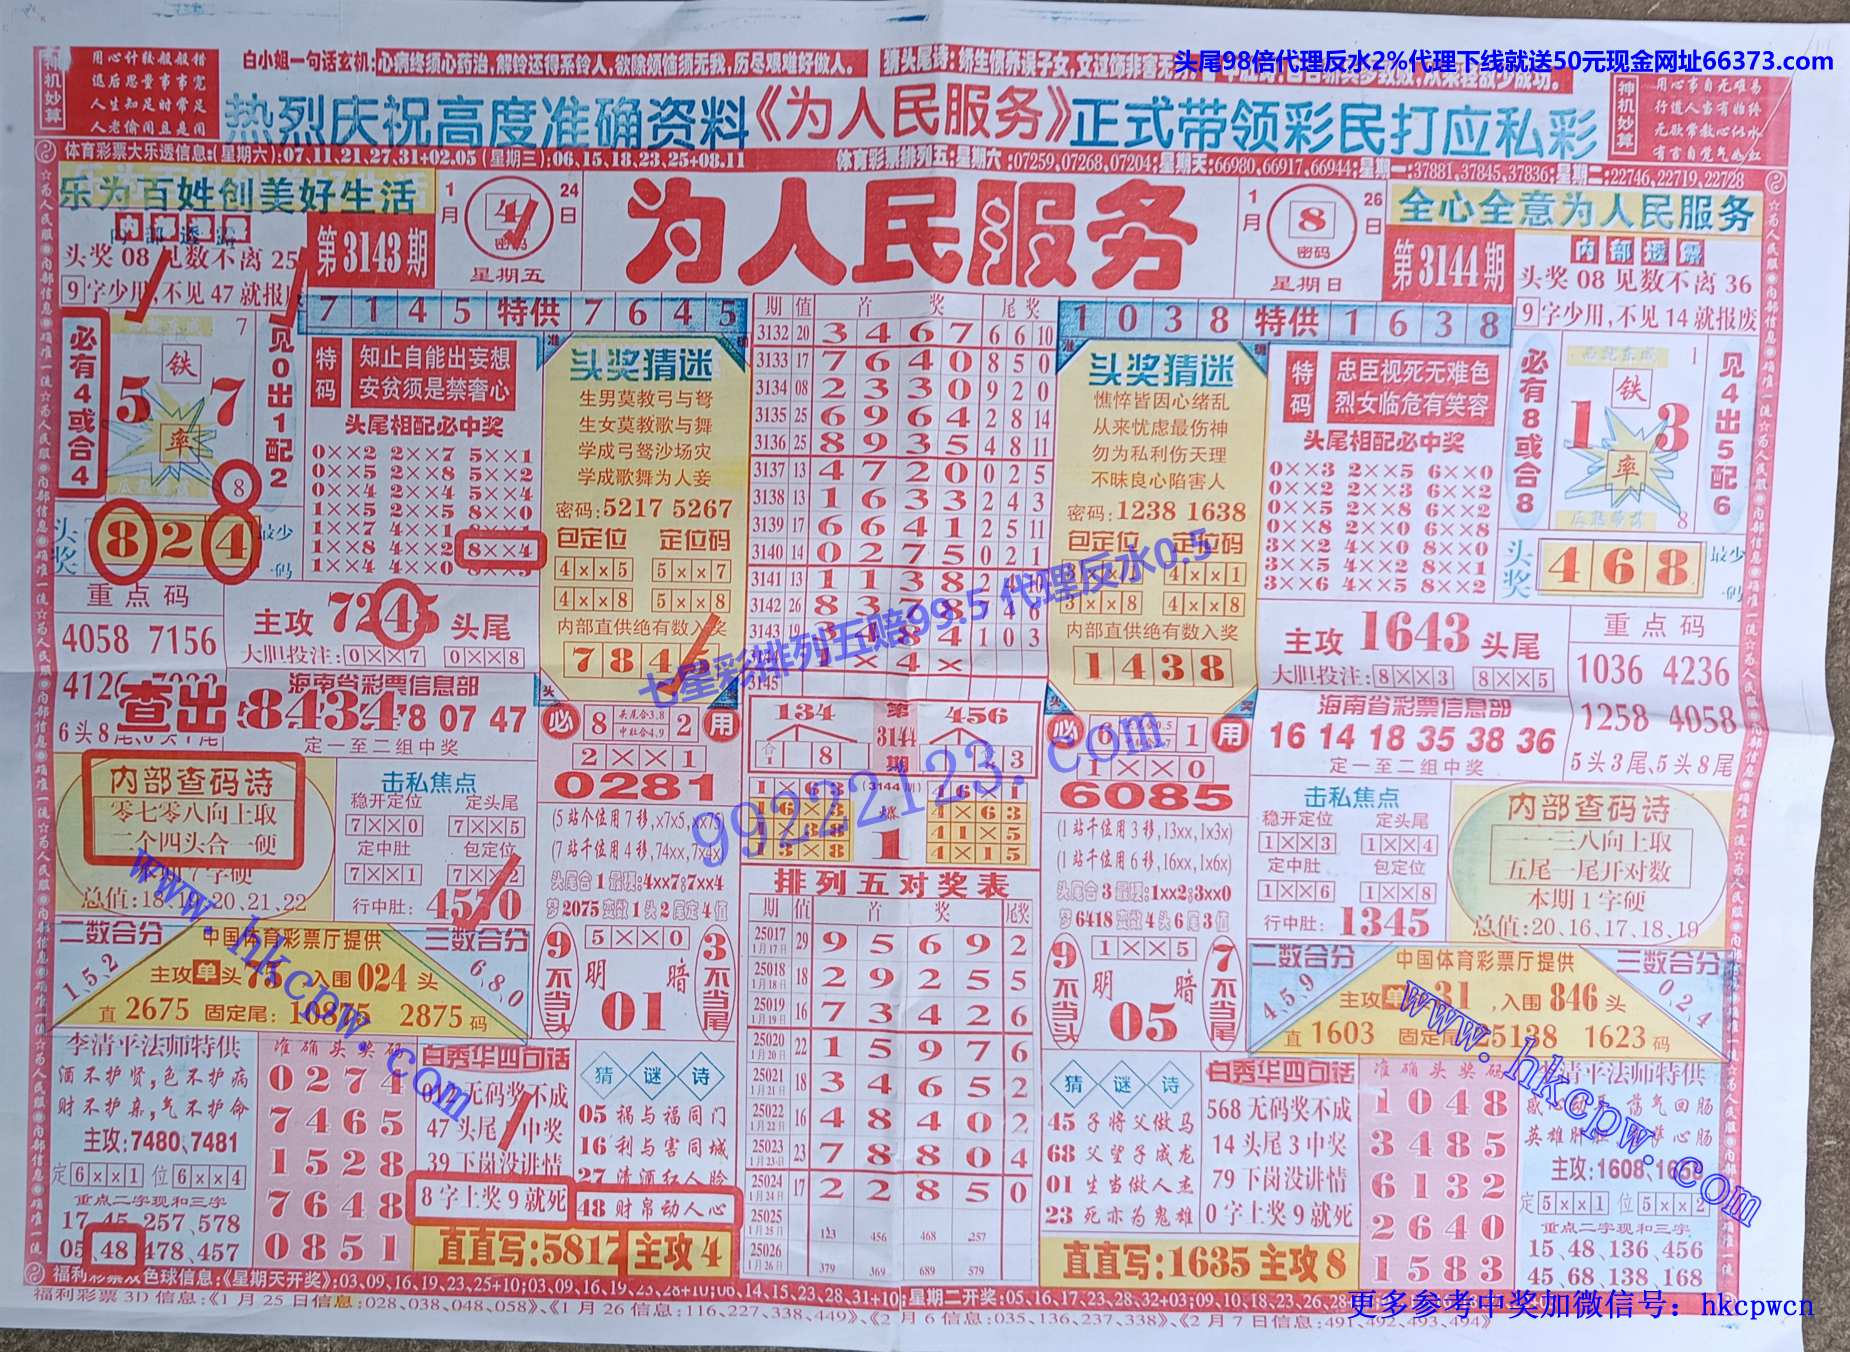 头尾98倍代理反水2%代理下线就送50元现金网址66373.com
神机妙算
用心计较般般错
退后思量事事宽
人生知足时常足
人老偷闲且是闲
白小姐一句话玄机:心病终须心药治,解铃还得系铃人,欲除烦恼须无我,历尽艰难好做人。
猜头尾诗:娇生惯养误子女,文过饰非害
热烈庆祝高度准确资料《为人民服务》正式带领彩民打应私彩
神机妙算
用心事自无难易
行道人当有始终
无欲常教心似水
有言自觉气如虹
体育彩票大乐透信息:(星期六):07,11,21,27,31+02.05(星期三):06,15,18,23,25+08.11
体育彩票排列五:星期六:07259,07268,07204;星期天:66980,66917,66944;星期一:37881,37845,37836;星期二:22746,22719,22728
乐为百姓创美好生活
内部透露
头奖08见数不离25
9字少用,不见47就报废
第3143期
1月 4 密码 24日
星期五
为人民服务
1月 8 密码 26日
星期日
第3144期
全心全意为人民服务
内部透露
头奖08见数不离36
9字少用,不见14就报废
7145特供7645
必有4或合4
7
铁
5 7
率
8
见0出1配2
头奖 824 最少一码
特码
知止自能出妄想
安贫须是禁奢心
头尾相配必中奖
0××2 2××7 5××1
0××5 2××8 5××2
0××4 2××4 5××4
1××5 2××5 8××0
1××7 4××1
1××8 4××2 8××4
1××4 4××0 8××5
头奖猜迷
生男莫教弓与弩
生女莫教歌与舞
学成弓弩沙场灾
学成歌舞为人妾
密码:5217 5267
包定位 定位码
4××5 5××7
4××8 5××8
内部直供绝有数入奖
7845
重点码
4058 7156
主攻 7245 头尾
大胆投注: 0××7 0××8
查出 8434
海南省彩票信息部
78 07 47
定一至二组中奖
期 值 首奖 尾奖
3132 20 3467 6 6 10
3133 17 7640 8 5 0
3134 08 2330 9 2 0
3135 25 6964 2 8 14
3136 25 8935 4 8 11
3137 13 4720 0 2 5
3138 13 1633 2 4 3
3139 17 6641 2 5 11
3140 14 0275 0 2 1
3141 13 1138
3142 26 83
3143 19 3484 1 0 3
3145
1038特供1638
头奖猜迷
憔悴皆因心绪乱
从来忧虑最伤神
勿为私利伤天理
不昧良心陷害人
密码:1238 1638
包定位 定位码
4××1
3××8 4××8
内部直供绝有数入奖
1438
特码
忠臣视死无难色
烈女临危有笑容
头尾相配必中奖
0××3 2××5 6××0
0××2 2××3 6××2
0××5 2××8 6××2
0××8 2××0 6××8
3××2 4××0 8××0
3××5 4××2 8××1
3××6 4××5 8××2
必有8或合8
1
铁
1 3
率
8
见4出5配6
头奖 468 最少一码
主攻 1643 头尾
大胆投注: 8××3 8××5
重点码
1036 4236
1258 4058
5头3尾、5头8尾
海南省彩票信息部
16 14 18 35 38 36
定一至二组中奖
七星彩排列五赔99.5 代理反水0.5
99222123.com
内部查码诗
零七零八向上取
二个四头合一硬
总值:18、19、20、21、22
击私焦点
稳开定位 定头尾
7××0 7××5
定中肚 包定位
7××1 7××2
行中肚: 4570
必 8 头尾合3.8 中肚合4.9 2 用
2××1
0281
(5站个位用7移,x7x5,xx75)
(7站千位用4移,74xx,7x4x)
头尾合1最模:4xx7;7xx4
梦2075变数1头2尾定4值
134 第3144期 456
合1 8
(3144期)
1
必 1 用
1××0
6085
(1站千位用3移,13xx,1x3x)
(1站千位用6移,16xx,1x6x)
头尾合3最模:1xx2;3xx0
梦6418变数4头6尾3值
击私焦点
稳开定位 定头尾
1××3 1××4
定中肚 包定位
1××6 1××8
行中肚: 1345
内部查码诗
一二三八向上取
五尾一尾开对数
本期1字硬
总值:20、16、17、18、19
二数合分
1,5,2
中国体育彩票厅提供
主攻单头75 入围024头
直 2675 固定尾: 16875 2875码
三数合分
6,8,0
9不当头
5××0
明 暗
01
3不当尾
排列五对奖表
期 值 首奖 尾奖
25017 1月17日 29 9 5 6 9 2
25018 1月18日 18 2 9 2 5 5
25019 1月19日 16 7 3 4 2 6
25020 1月20日 22 1 5 9 7 6
25021 1月21日 18 3 4 6 5 2
25022 1月22日 16 4 8 4 0 2
25023 1月23日 23 7 8 8 0 4
25024 1月24日 17 2 2 8 5 0
25025 1月25日 123 456 468 257
25026 1月26日 379 369 689 579
9不当头
1××5
明 暗
05
7不当尾
二数合分
4,5,9
中国体育彩票厅提供
主攻单31,入围846头
直 1603 固定尾 25138 1623码
三数合分
0,2,4
李清平法师特供
酒不护贤,色不护病
财不护亲,气不护命
主攻:7480、7481
定6××1位6××4
重点二字现和三字
17、45、257、578
05、48、478、457
准确头奖码
0274
7465
1528
7648
0851
白秀华四句话
无码奖不成
47头尾 中奖
39下岗没讲情
8字上奖9就死
猜谜诗
05 祸与福同门
16 利与害同城
27 清酒红人脸
48 财帛动人心
直直写:5817 主攻4
猜谜诗
45 子将父做马
68 父望子成龙
01 生当做人杰
23 死亦为鬼雄
白秀华四句话
568无码奖不成
14头尾3中奖
79下岗没讲情
0字上奖9就死
直直写:1635 主攻8
准确头奖码
1048
3485
6132
2640
1583
清平法师特供
荡气回肠
主攻:1608、1658
定5××1位5××2
重点二字现和三字
15、48、136、456
45、68、138、168
www.hkcpw.com
www.hkcpw.com
福利彩票双色球信息:《星期天开奖》:03,09,16,19,23,25+10;03,09,16,19,23,28+10;06,14,15,23,28,31+10;星期二开奖:05,16,17,23,28,32+03;09,10,18,23,26,28
福利彩票3D信息:《1月25日信息:028,038,048,058》、《1月26信息:116,227,338,449》、《2月6信息:035,136,237,338》、《2月7日信息:491,492,493,494》
更多参考中奖加微信号: hkcpwcn